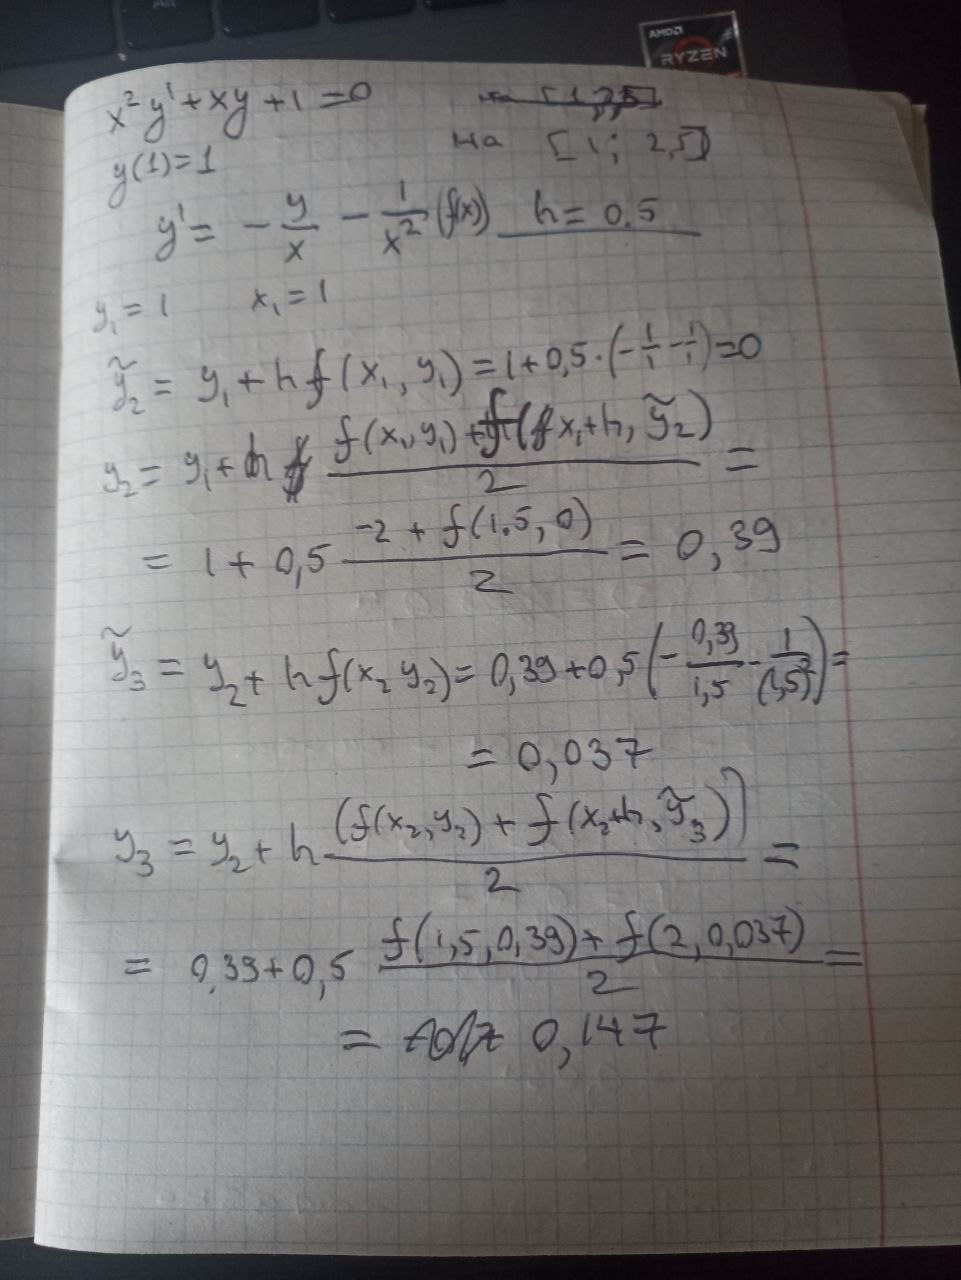 AMD
RYZEN
x² y' + xy + 1 = 0
y(1) = 1 на [1; 2,5]
y' = - y/x - 1/x² (f(x)) h = 0.5
y₁ = 1 x₁ = 1
ỹ₂ = y₁ + h f(x₁, y₁) = 1 + 0,5 · (- 1/1 - 1/1) = 0
y₂ = y₁ + h (f(x₁, y₁) + f(x₁+h, ỹ₂))/2 =
= 1 + 0,5 (-2 + f(1.5, 0))/2 = 0,39
ỹ₃ = y₂ + h f(x₂ y₂) = 0,39 + 0,5 (- 0,39/1,5 - 1/(1,5)²) =
= 0,037
y₃ = y₂ + h (f(x₂, y₂) + f(x₂+h, ỹ₃))/2 =
= 0,39 + 0,5 (f(1,5, 0,39) + f(2, 0,037))/2 =
= 0,147